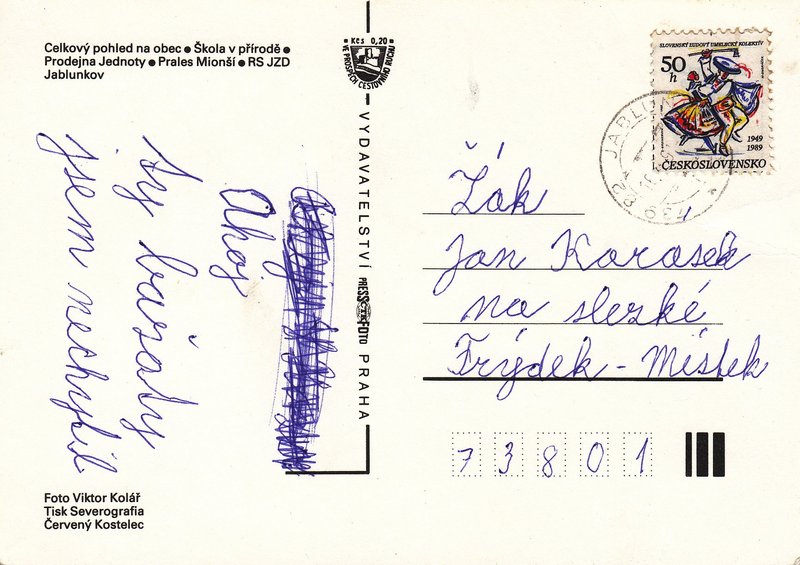 Celkový pohled na obec ● Škola v přírodě ●
Prodejna Jednoty ● Prales Mionší ● RS JZD
Jablunkov
Kčs 0,20
VE PROSPĚCH CESTOVNÍHO RUCHU
VYDAVATELSTVÍ PRESSFOTO PRAHA
SLOVENSKÝ ĽUDOVÝ UMELECKÝ KOLEKTÍV
50 h
1949
1989
ČESKOSLOVENSKO
739 91
Ahoj
ty bačaty
jsem nechybil
Žák
Jan Karasek
na slezké
Frýdek - Místek
73801
Foto Viktor Kolář
Tisk Severografia
Červený Kostelec